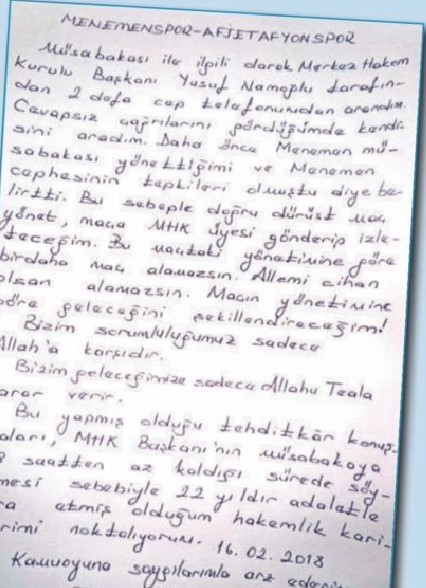 MENEMENSPOR-AFJETAFYONSPOR
Müsabakası ile ilgili olarak Merkez Hakem
Kurulu Başkanı Yusuf Namoğlu tarafın-
dan 2 defa cep telefonumdan arandım.
Cevapsız çağrılarını gördüğümde kendi-
sini aradım. Daha önce Menemen mü-
sabakası yönettiğimi ve Menemen
cephesinin tepkileri olmuştu diye be-
lirtti. Bu sebeple doğru dürüst maç
yönet, maça MHK üyesi gönderip izle-
teceğim. Bu maçtaki yönetimine göre
birdaha maç alamazsın. Allemi cihan
olsan alamazsın. Maçın yönetimine
göre geleceğini şekillendireceğim!
Bizim sorumluluğumuz sadece
Allah'a karşıdır.
Bizim geleceğimize sadece Allahu Teala
arar verir.
Bu yapmış olduğu tehditkâr konuş-
aları, MHK Başkanı'nın müsabakaya
saatten az kaldığı sürede söy-
mesi sebebiyle 22 yıldır adaletle
ra etmiş olduğum hakemlik kari-
rimi noktalıyorum. 16.02.2018
Kamuoyuna saygılarımla arz ederim